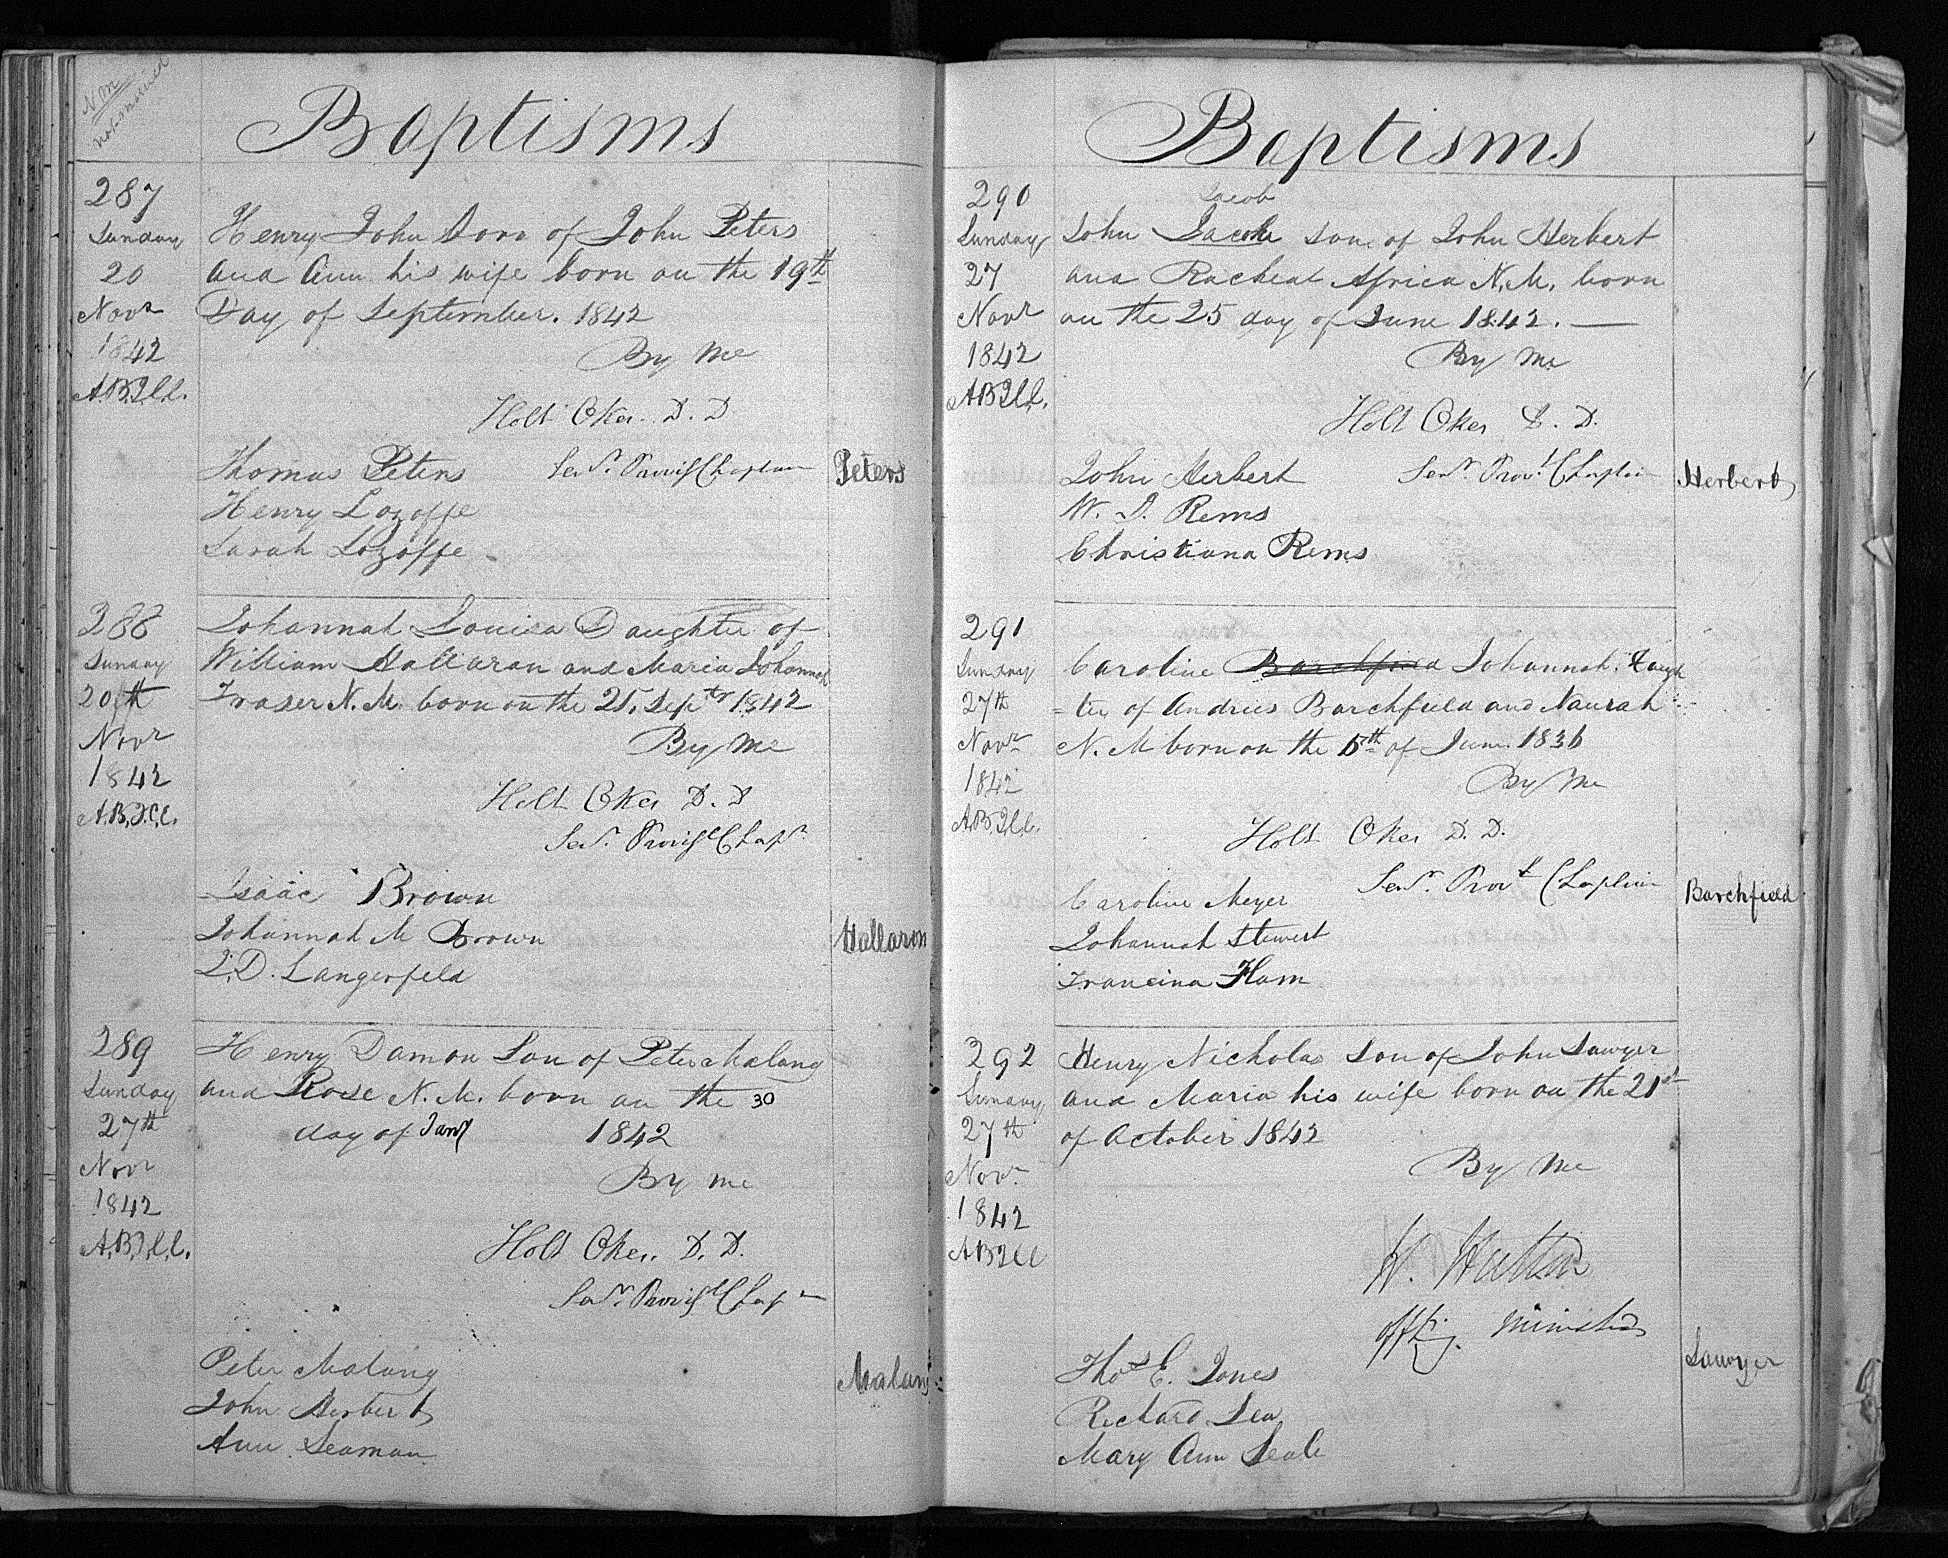 N M
not married
Baptisms
287
Sunday
20
Novr
1842
A.B.J.C.C.
Henry John Son of John Peters
and Ann his wife born on the 19th
Day of September. 1842
By Me
Holt Okes. D. D
Senr.
Thomas Peters
Henry Lozoffe
Sarah Lozoffe
Peters
288
Sunday
20th
Novr
1842
A.B.J.C.C.
Johannah Louisa Daughter of
William Hallaran and Maria Johannah
Fraser N. M. born on the 21. Septr 1842
By Me
Holt Okes D. D
Senr.
Isaac Brown
Johannah M Brown
J. D. Langerfeld
Hallaron
289
Sunday
27th
Novr
1842
A.B.J.C.C.
Henry Damon Son of Peter Malang
and Rose N. M. born on the 30
day of Jany 1842
By me
Holt Okes. D. D.
Senr.
Peter Malang
John Herbert
Ann Seaman
Malang
Baptisms
290
Sunday
27
Novr
1842
A.B.J.C.C.
Jacob
John Jacob son of John Herbert
and Racheal Africa N. M. born
on the 25 day of June 1842. —
By Me
Holt Okes D. D.
Senr. Provl Chaplain
John Herbert
W. J. Rems
Christiana Rems
Herbert
291
Sunday
27th
Novr
1842
A.B.J.C.C.
Caroline Barchfield Johannah. Daugh
=ter of Andries Barchfield and Naurah
N. M born on the 5th of June. 1836
By Me
Holt Okes D. D.
Senr. Provl Chaplain
Caroline Meyer
Johannah Stewert
Francina Ham
Barchfield
292
Sunday
27th
Novr
1842
A B J C C
Henry Nicholas Son of John Sawyer
and Maria his wife born on the 21st
of October 1842
By Me
W. Hutton
Offg. Minister
Thos E. Jones
Richard Lea
Mary Ann Seale
Sawyer